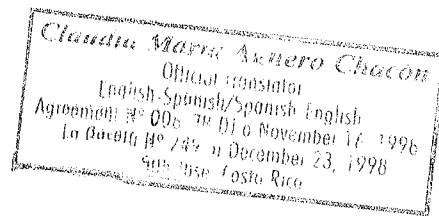 Claudia María Agüero Chacón
Official Translator
English-Spanish/Spanish English
Agreement Nº DI November 1996
La Gaceta Nº 249 December 23, 1998
San Jose Costa Rica